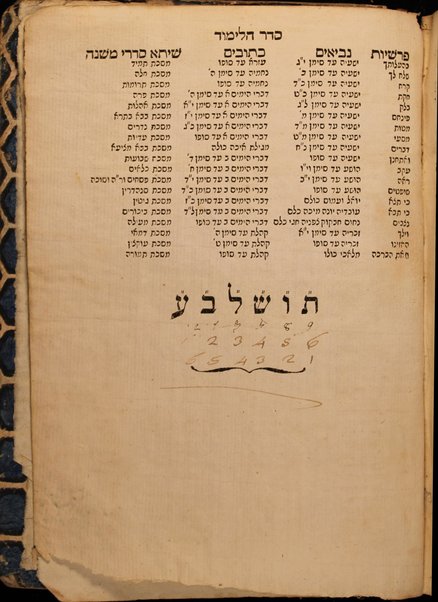 סדר הלימוד
פרשיות נביאים כתובים שיתא סדרי משנה
בהעלותך ישעיה עד סימן י"ג עזרא עד סופו מסכת תמיד
שלח לך ישעיה עד סימן כ' נחמיה עד סימן ה' מסכת חלה
קרח ישעיה עד סימן כ"ד נחמיה עד סופו מסכת תרומות
חקת ישעיה עד סימן כ"ט דברי הימים א עד סימן ה' מסכת פרה
בלק ישעיה עד סימן ל"ג דברי הימים א עד סימן י"א מסכת אהלות
פינחם ישעיה עד סימן מ' דברי הימים א עד סימן י"ז מסכת בבא בתרא
מטות ישעיה עד סימן מ"ד דברי הימים א עד סימן מסכת נדרים
מסעי ישעיה עד סימן מ"ט דברי הימים א עד סופו מסכת עדיות
דברים ישעיה עד סימן נ"ח מגילת איכה כולה מסכת בבא מליעא
ואתחנן ישעיה עד סופו דברי הימים כ עד סימן ד' מסכת שבועות
עקב הושע עד סימן וי"ו דברי הימים כ עד סימן ח' מסכת כלאים
ראה הושע עד סימן י"ב דברי הימים כ עד סימן מסכת פסחים ור"ה וסוכה
שופטים הושע עד סופו דברי הימים כ עד סימן כ"ד מסכת סנהדרין
כי תצא יואל ועמוס כולם דברי הימים כ עד סימן כ"ז מסכת גיטין
כי תבא עובדיה יונה מיכה כלם דברי הימים כ עד סימן ל"ד מסכת ביכורים
נצבים נחום חבקוק לפניה חגי כלם דברי הימים כ עד סופו מסכת מעילה
וילך זכריה עד סימן י"א קהלת עד סימן ה' מסכת דמאי
האזינו זכריה עד סופו קהלת עד סימן ט' מסכת עוקלין
וזאת הברכה מלאכי כולו קהלת עד סופו מסכת תמורה
תושלבע
9 8
2 3 4 5 6
6 5 4 3 2 1